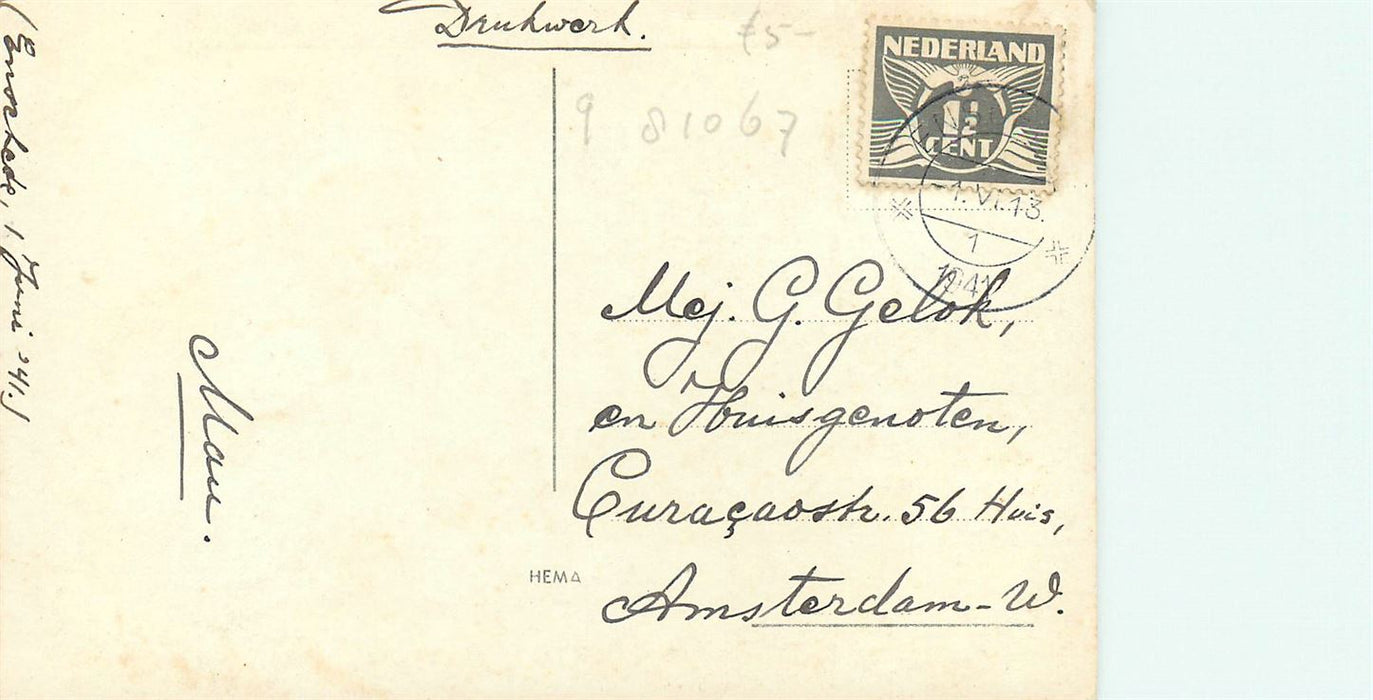 Drukwerk.
£5-
9 81067
NEDERLAND
1½
CENT
1.VI.13.
1
1941
(Enschede, 1 Juni '41.)
Mau.
Mej. G. Gelok,
en Huisgenoten,
Curaçaostr. 56 Huis,
Amsterdam-W.
HEMA